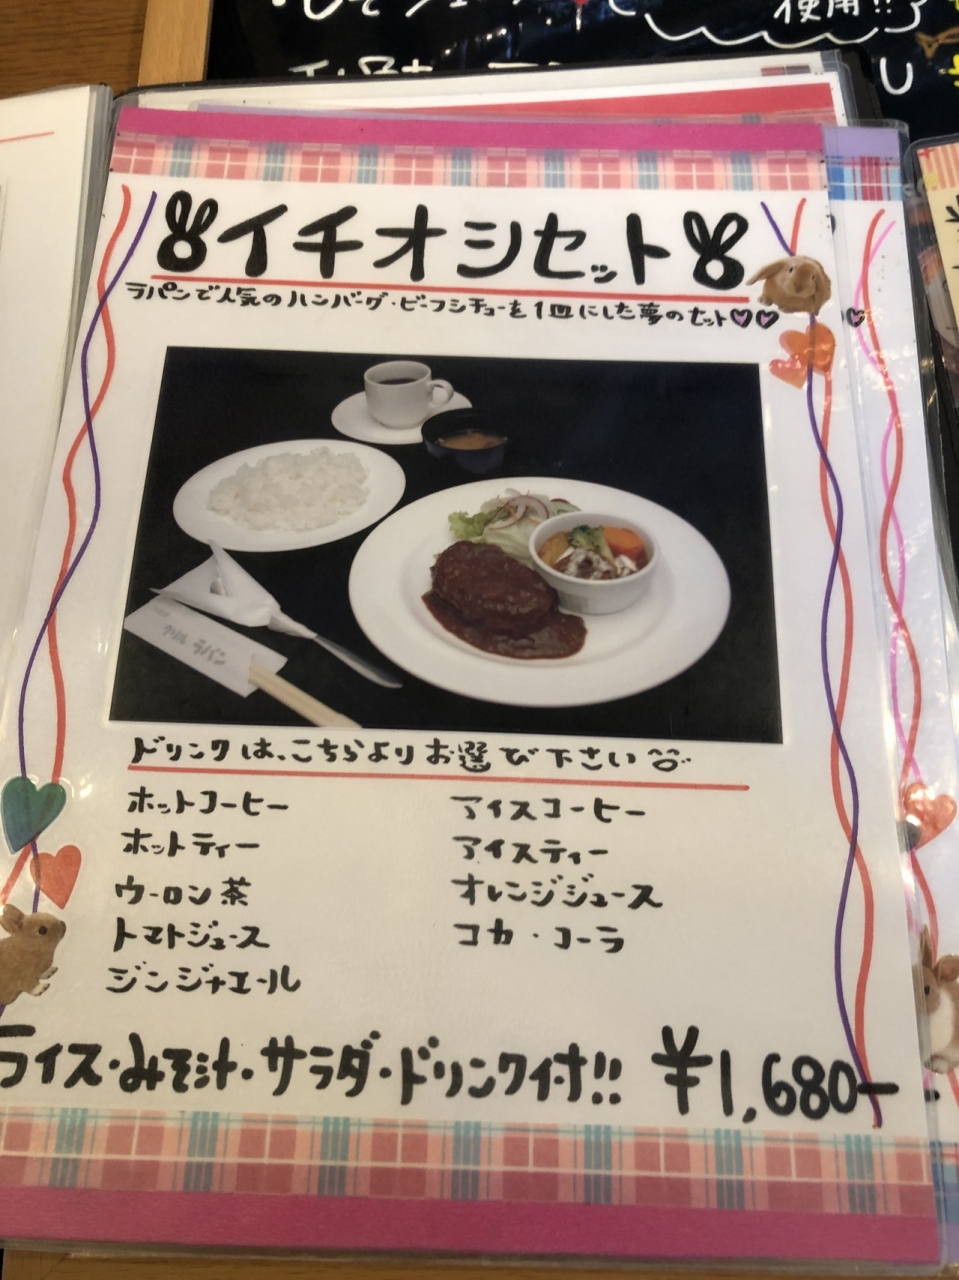 使用!!
イチオシセット
ラパンで人気のハンバーグ・ビーフシチューを1皿にした夢のセット♡♡
グリル ラパン
ドリンクは、こちらよりお選び下さい
ホットコーヒー
アイスコーヒー
ホットティー
アイスティー
ウーロン茶
オレンジジュース
トマトジュース
コカ・コーラ
ジンジャエール
ライス・みそ汁・サラダ・ドリンク付!! ¥1,680-